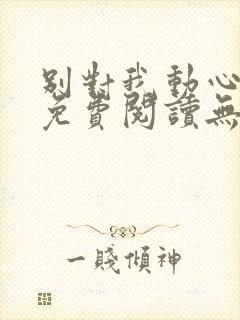 别對我動心
免費閱讀無
一賤傾神